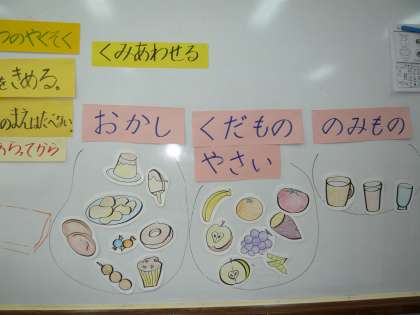 つのやくそく
くみあわせる
をきめる。
のまえはたべない。
あらってから
おかし
くだもの
やさい
のみもの